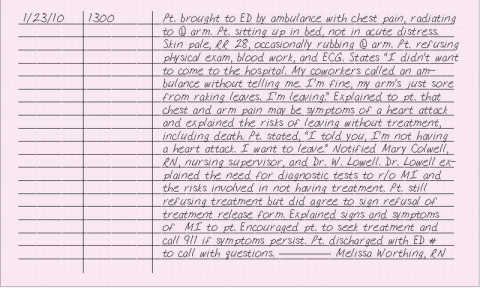 1/23/10 1300 Pt. brought to ED by ambulance with chest pain, radiating
to Ⓛ arm. Pt. sitting up in bed, not in acute distress.
Skin pale, RR 28, occasionally rubbing Ⓛ arm. Pt. refusing
physical exam, blood work, and ECG. States "I didn't want
to come to the hospital. My coworkers called an am-
bulance without telling me. I'm fine, my arm's just sore
from raking leaves. I'm leaving." Explained to pt. that
chest and arm pain may be symptoms of a heart attack
and explained the risks of leaving without treatment,
including death. Pt. stated, "I told you, I'm not having
a heart attack. I want to leave." Notified Mary Colwell,
RN, nursing supervisor, and Dr. W. Lowell. Dr. Lowell ex-
plained the need for diagnostic tests to r/o MI and
the risks involved in not having treatment. Pt. still
refusing treatment but did agree to sign refusal of
treatment release form. Explained signs and symptoms
of MI to pt. Encouraged pt. to seek treatment and
call 911 if symptoms persist. Pt. discharged with ED #
to call with questions. ———— Melissa Worthing, RN